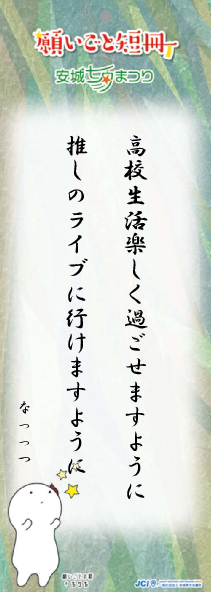 願いごと短冊
安城七夕まつり
高校生活楽しく過ごせますように
推しのライブに行けますように
なっっつ
JCI